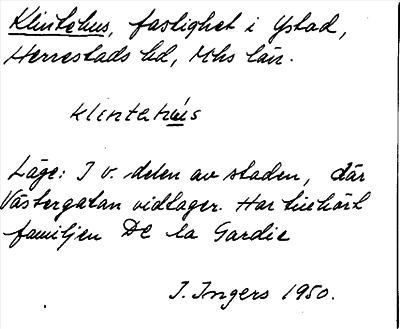 Klintehus, fastighet i Ystad,
Herrestads hd, Mhs län.
klintahús
Läge: I v. delen av staden, där
Västergatan vidtager. Har tillhört
familjen De la Gardie
I. Ingers 1950.